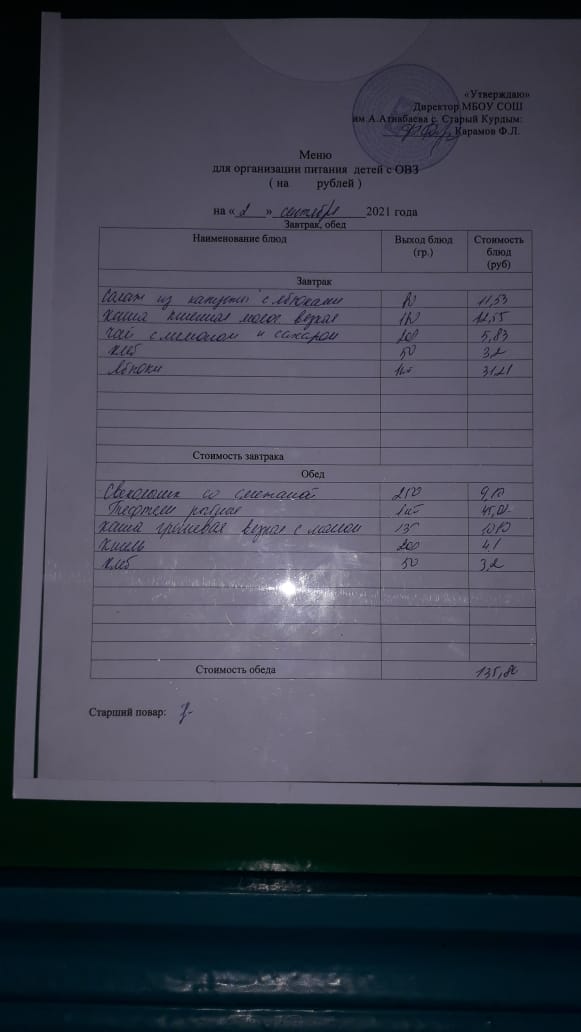 «Утверждаю»
Директор МБОУ СОШ
им А.Атнабаева с. Старый Курдым:
Карамов Ф.Л.
Меню
для организации питания детей с ОВЗ
( на рублей )
на « 2 » сентября 2021 года
Завтрак, обед
Наименование блюд Выход блюд (гр.) Стоимость блюд (руб)
Завтрак
Салат из капусты с яблоками 11,53
Каша пшенная молоч вязкая
Чай с лимоном и сахаром 200 5,83
Хлеб 50 3,2
Яблоки 1шт 31,21
Стоимость завтрака
Обед
Свекольник со сметаной 250
Тефтели рыбные 1шт
Каша гречневая вязкая с маслом 135
Кисель 200 4,1
Хлеб 50 3,2
Стоимость обеда 135,86
Старший повар: